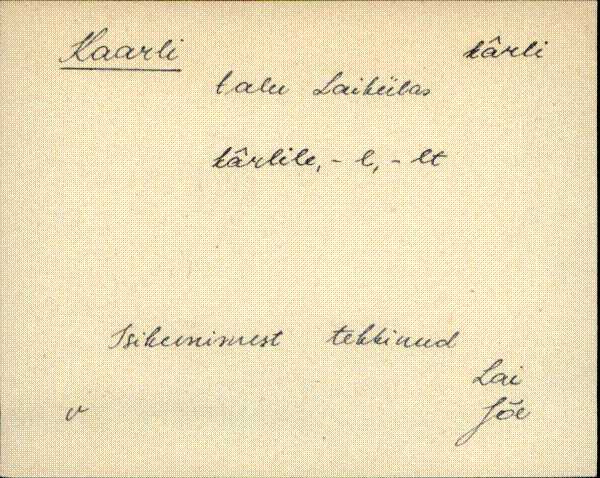 Kaarli kârli
talu Laikülas
kârlile, - l, - lt
Isikunimest tekkinud
Lai
v Jõe